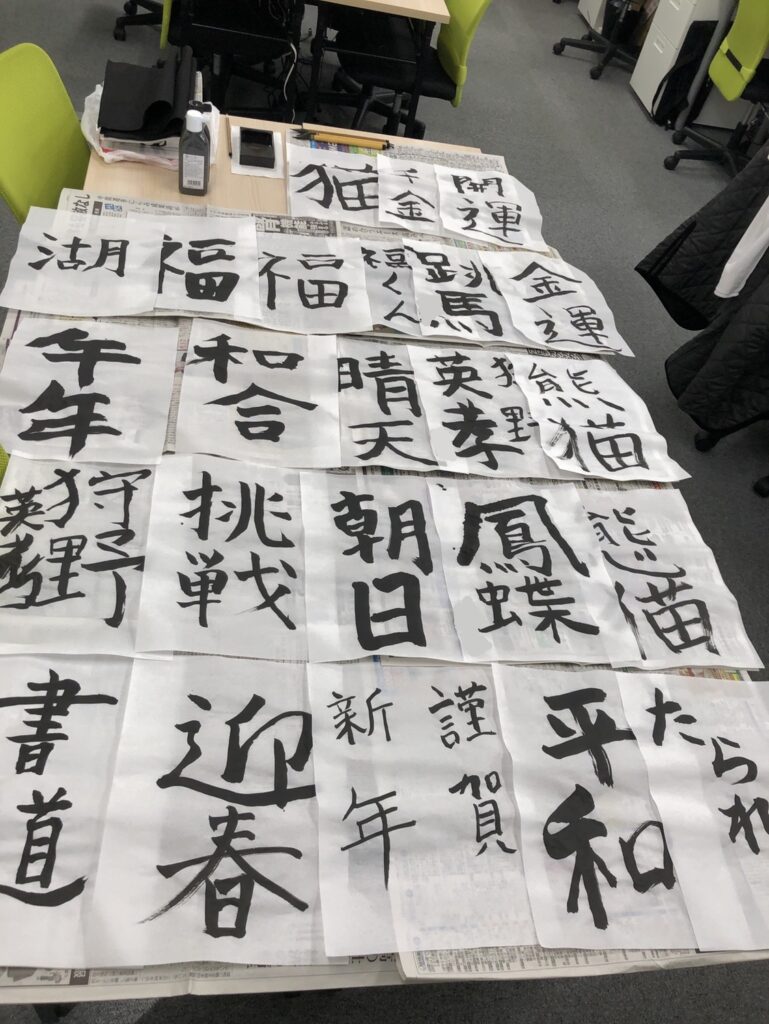 猫
千金
開運
湖
福
福
福くん
跳馬
金運
午年
和合
晴天
狩野
英孝
熊猫
狩野
英孝
挑戦
朝日
鳳蝶
熊猫
書道
迎春
謹賀
新年
平和
たられ